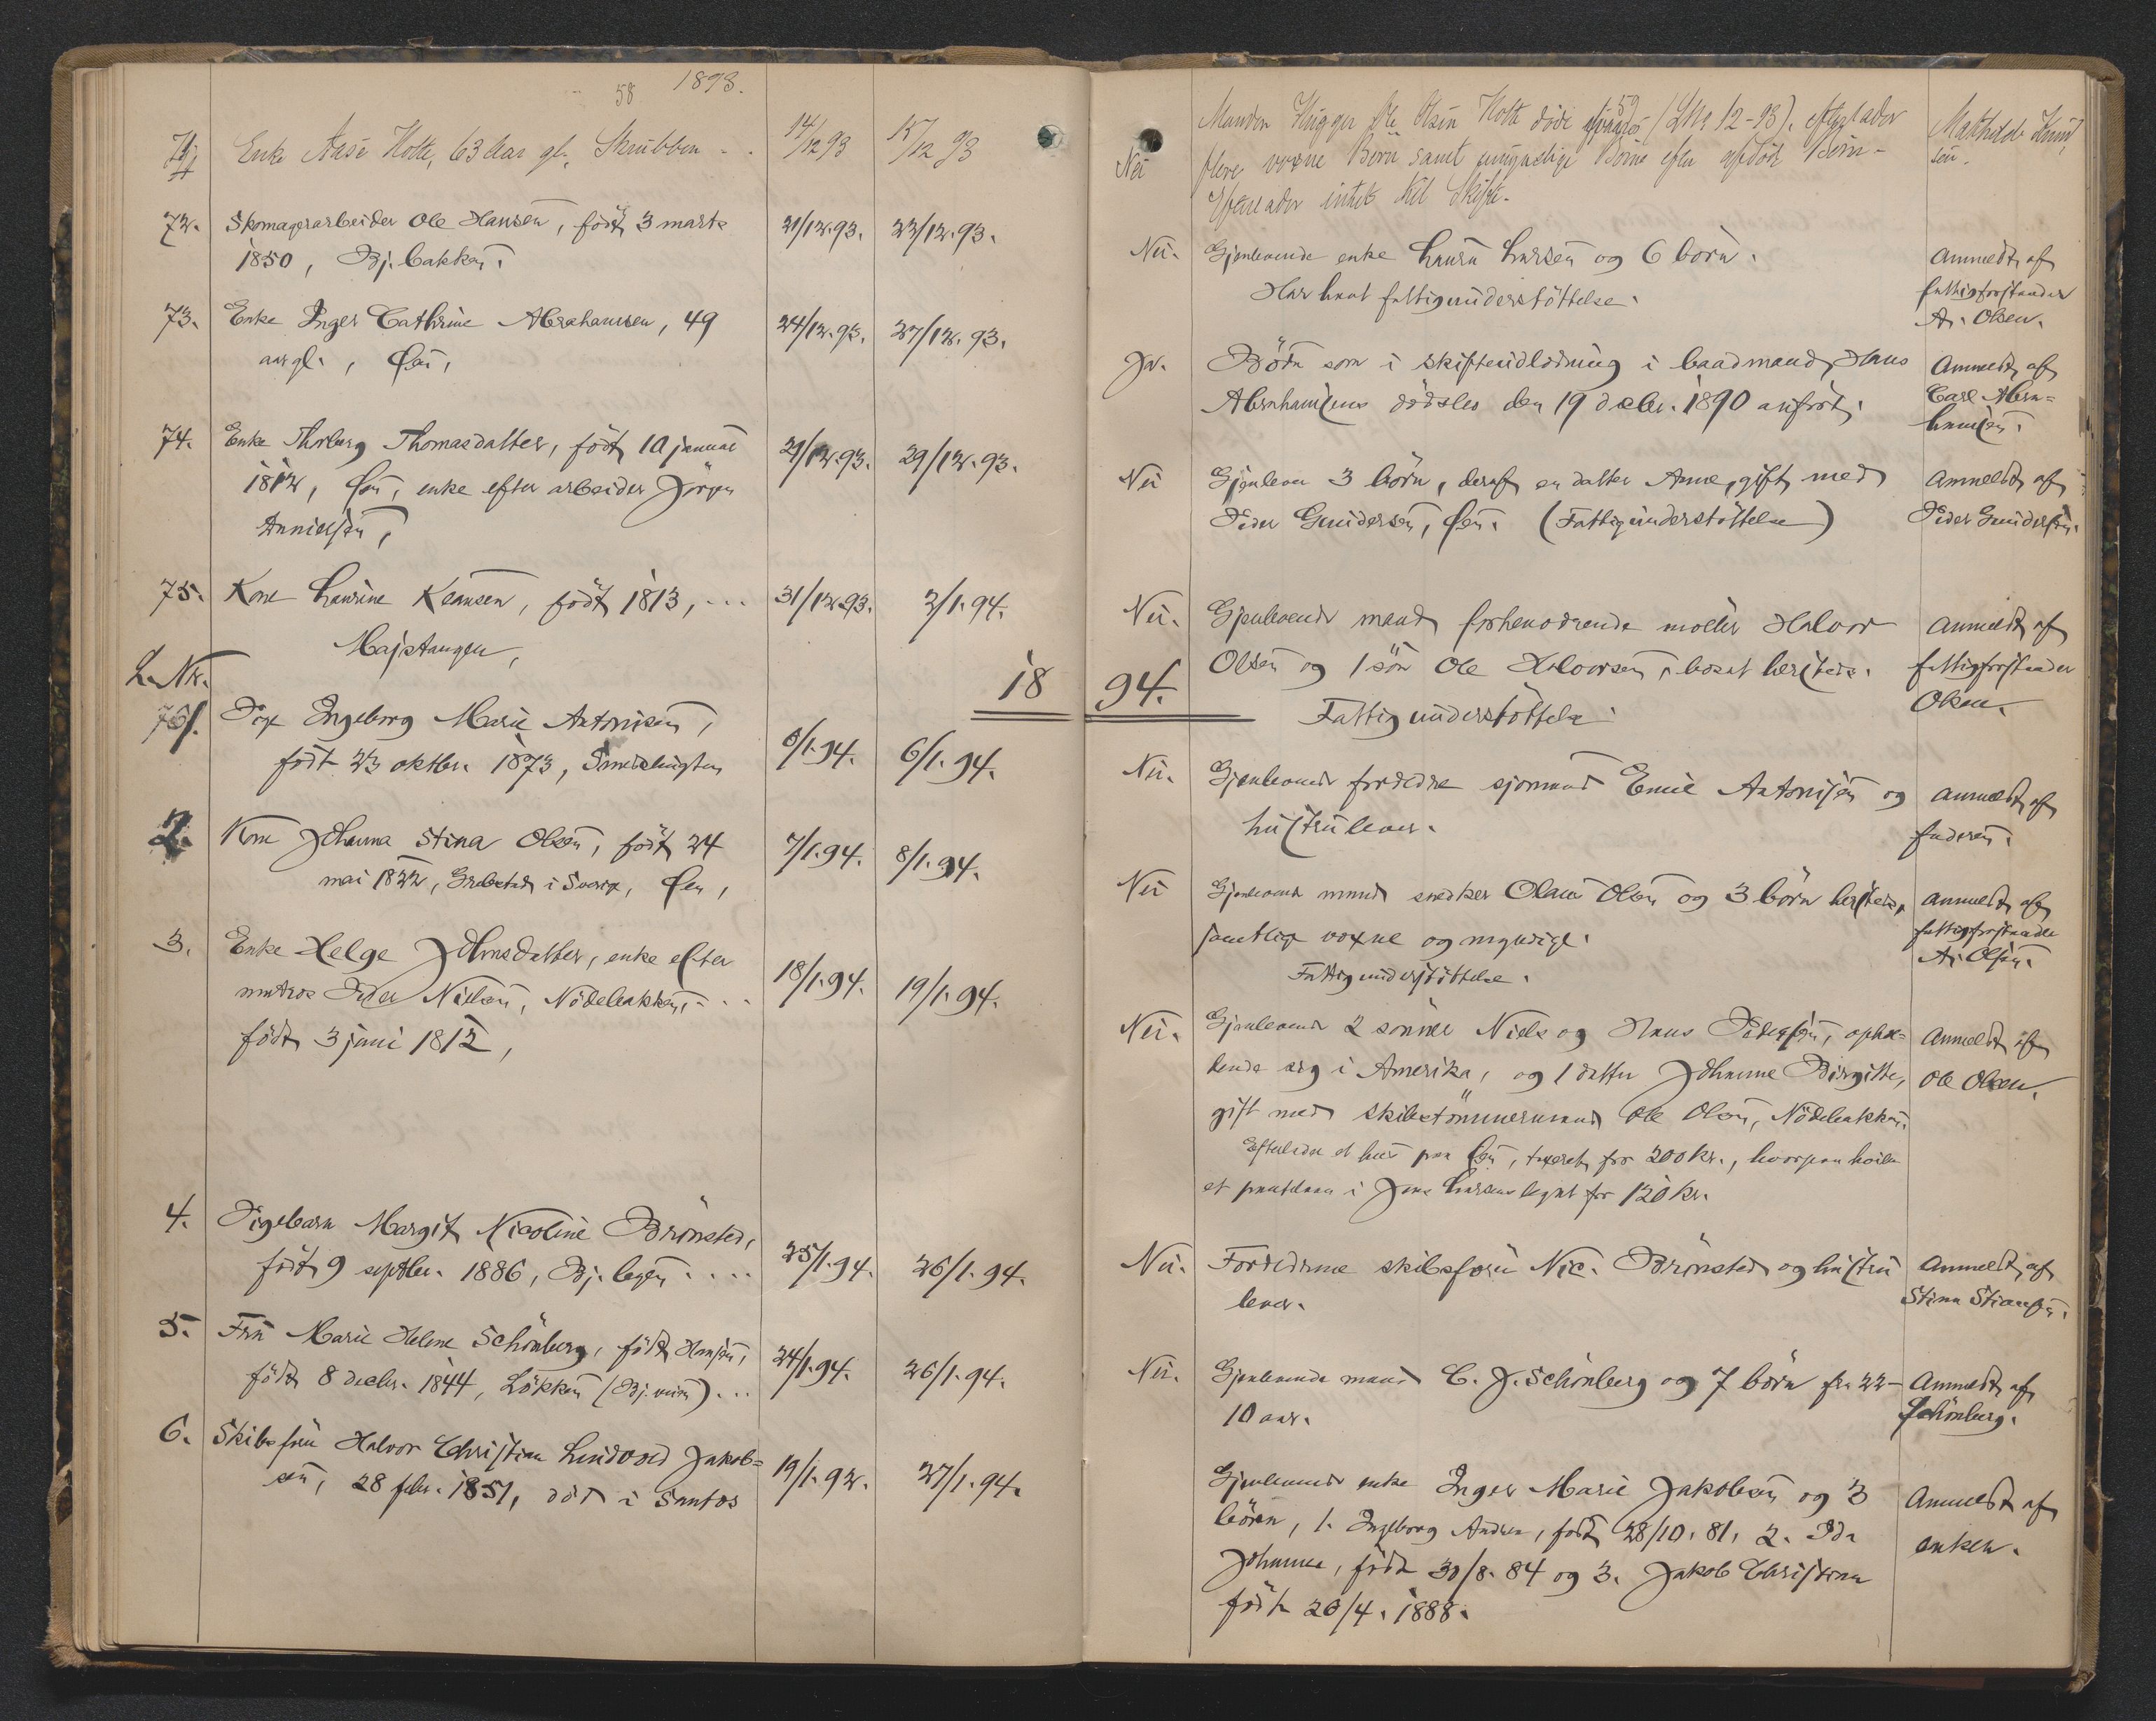 58 1893.
71 Enke Aase Holte, 63 Aar gl. Skrubben - .
14/12 93
15/12 93
72. Skomagerarbeider Ole Hansen, född 3 marts
1850, Bj. bakken.
21/12.93.
22/12.93.
73. Enke Inger Cathrine Abrahamsen, 49
aar gl., Øen,
24/12.93.
27/12.93.
74. Enke Thorborg Thomasdatter, född 10 januar
1812, Øen, enke efter arbeider Jörgen
29/12.93.
75. Kone Laurine Klausen, född 1813, ...
Majstangen,
31/12.93.
2/1.94.
L. Nr. 18
1. Pige Ingeborg Marie Antonisen,
född 23 oktbr. 1873, Smedhugten
6/1.94.
6/1.94.
2. Kone Johanna Stina Olsen, född 24
mai 1822, Grebestad i Sverige, Øen,
7/1.94.
8/1.94.
3. Enke Helge Johnsdatter, enke efter
matros Peder Nielsen, Nödebakken, ...
född 3 juni 1812,
18/1.94.
19/1.94.
4. Pigebarn Margit Nicoline Brönsted,
född 9 septbr. 1886, Bj. byen ....
25/1.94.
26/1.94.
5. Fru Marie Helene Schönberg, född Hansen,
född 8 decbr. 1844, Lökken (Bj. veien) ...
24/1.94.
26/1.94.
6. Skibsförer Halvor Christian Lindvod Jakob=
sen, 28 febr. 1851, död i Santos
19/1.92.
27/1.94.
59
Nei Manden Hugger Ole Olsen Holte döde (LNr 12-93). efterlader
flere voxne Börn samt umyndige Börn efter afdöd Börn-
Efterlader intet til Skifte.
Mathilde Knud
sen.
Nei. Gjenlevende enke Laura Larsen og 6 börn.
Har havt fattigunderstöttelse.
Anmeldt af
fattigforstander
A. Olsen.
Ja. Börn som i skifteudlodning i baadmand Hans
Abrahamsens dödsbo den 19 decbr. 1890 anfört.
Anmeldt af
Carl Abra=
hamsen.
Nei Gjenlever 3 börn, deraf en datter Anne, gift med
Peder Gundersen, Øen. (Fattigunderstöttelse)
Anmeldt af
Peder Gundersen.
Nei. Gjenlevende mand forhenværende möller Halvor
Olsen og 1 sön Ole Halvorsen, bosat hersteds.
Fattigunderstöttelse.
Anmeldt af
fattigforstander
Olsen.
94.
Nei. Gjenlevende forældre sjömand Emil Antonisen og
hustru lever.
Anmeldt af
faderen.
Nei Gjenlevende mand snedker Olaus Olsen og 3 börn hersteds,
samtlige voxne og myndige.
Fattigunderstöttelse.
Anmeldt af
fattigforstander
A. Olsen.
Nei. Gjenlevende 2 sönner Niels og Hans Pedersen, ophol=
dende sig i Amerika, og 1 datter Johanne Birgitte,
gift med skibstömmermand Ole Olsen, Nödebakken.
Efterlader et hus paa Øen, taxeret for 200 kr., hvorpaa hviler
et pantelaan i Jens Larsens legat for 120 kr.
Anmeldt af
Ole Olsen.
Nei. Forældrene skibsförer Nic. Brönsted og hustru
lever.
Anmeldt af
Stina Stiansen.
Nei. Gjenlevende mand C. J. Schönberg og 7 börn fra 22-
10 aar.
Anmeldt af
Schönberg.
Gjenlevende enke Inger Marie Jakobsen og 3
börn, 1. Ingeborg Andrea, född 28/10. 81, 2. Ida
Johanne, född 30/8. 84 og 3. Jakob Christian
född 26/4. 1888.
Anmeldt af
enken.